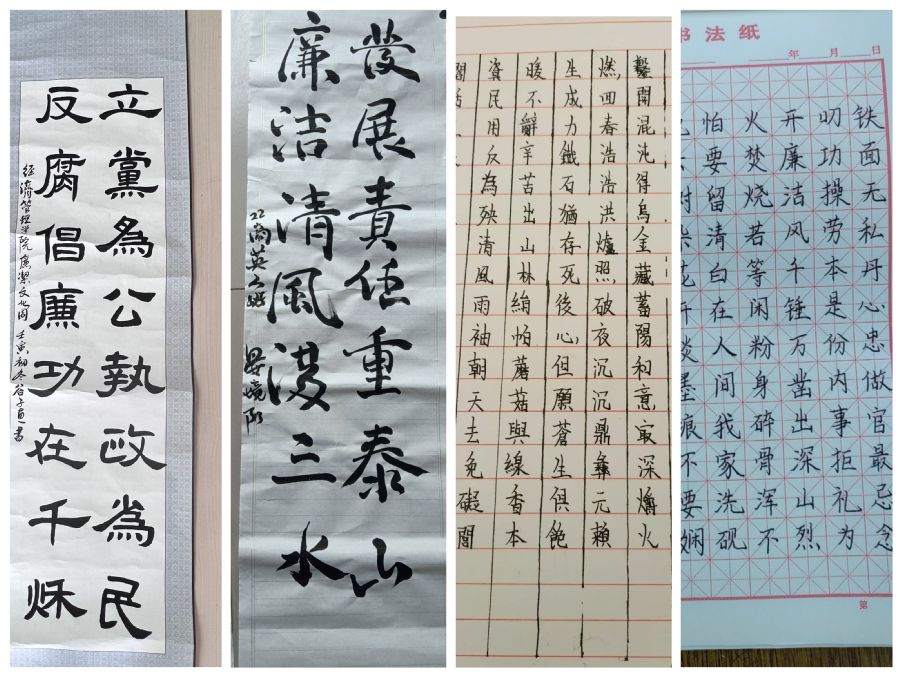 立黨為公執政為民
反腐倡廉功在千秌
经濟管理学院廉潔文化
壬寅初冬谷子
發展責任重泰山
廉洁清风三水
22商英六班
鑿開混沌得烏金藏蓄陽和意㝡深爝火
燃回春浩浩洪爐照破夜沉沉鼎彝元賴
生成力鐵石猶存死後心但願蒼生俱飽
暖不辭辛苦出山林絹帕蘑菇與線香本
資民用反為殃清風雨袖朝天去免礙閭
书法纸
年 月 日
铁面无私丹心忠做官最忌念
叨功操劳本是份内事拒礼为
开廉洁风千锤万凿出深山烈
火焚烧若等闲粉身碎骨浑不
怕要留清白在人间我家洗砚
淡墨痕不要娴
第